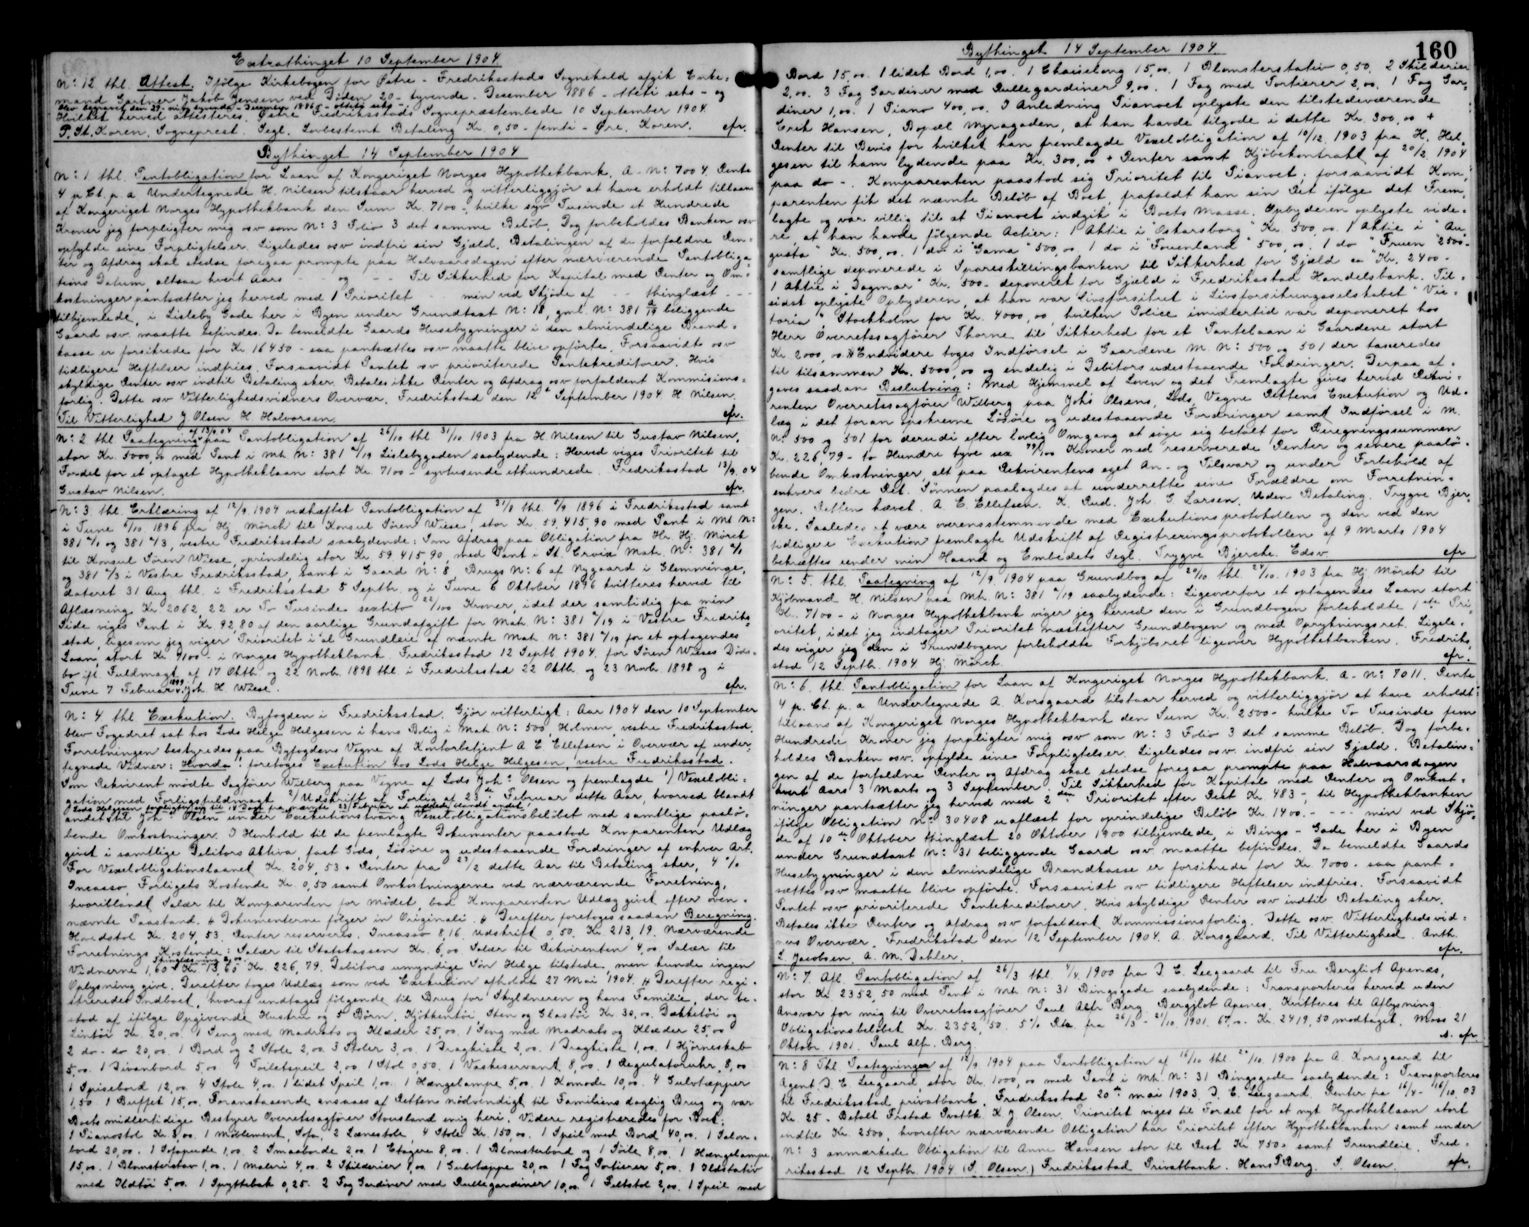 Extrathinget 10 September 1904
No: 12 thl. Attest. Ifølge Kirkebogen for Østre - Fredriksstads Sognekald afgik Enke-
mand Gartner Jakob Jensen ved Døden 20 - tyvende - Desember 1886 - atteti seks - og
blev begravet den 29 - nite tyvende - Desember 1886 - ottety seks -
Hvilket herved attesteres. Østre Fredriksstads Sogneprestembede 10 September 1904
P. St. Koren, Sogneprest. Segl. Lovbestemt Betaling Kr 0,50 - femti - Øre. Koren. efr.
Bythinget 14 September 1904
No: 1 thl. Pantobligation for Laan af Kongeriget Norges Hypothekbank. A - No: 7004. Rente
4 p. Ct. p. a Undertegnede H. Nilsen tilstaar herved og vitterliggjør at have erholdt tillaans
af Kongeriget Norges Hypothekbank den Sum Kr 7100 -, hvilke syv Tusinde et Hundrede
Kroner jeg forpligter mig osv som No: 3 Folio 3 det samme Beløb. Dog forbeholdes Banken osv
opfylde sine Forpligtelser. Ligeledes osv indfri sin Gjæld. Betalingen af de forfaldne Ren-
ter og Afdrag skal stedse foregaa prompte paa Halvaarsdagen efter nærværende Pantobliga-
tions Datum, altsaa hvert Aars - - og - - Til Sikkerhed for Kapital med Renter og Om-
kostninger pantsætter jeg herved med 1 Prioritet - - min ved Skjøde af - - thinglæst - - -
tilhjemlede, i Lisleby Gade her i Byen under Grundtaxt No: 18, gml. No: 381 a/19 beliggende
Gaard osv. maatte befindes. Da bemeldte Gaards Husebygninger i den almindelige Brand-
kasse er forsikrede for Kr 16450 - saa pantsættes osv maatte blive opførte. Forsaavidt osv
tidligere Heftelser indfries. Forsaavidt Pantet osv prioriterede Pantekreditorer. Hvis
skyldige Renter osv indtil Betaling sker. Betales ikke Renter og Afdrag osv forfaldent Kommisions-
forlig. Dette osv Vitterlighedsvidners Overvær. Fredriksstad den 12 September 1904 H Nilsen
Til Vitterlighed J Olsen H Halvorsen. efr.
No: 2 thl Paategning af 13/9 04 paa Pantobligation af 26/10 thl 31/10 1903 fra H Nilsen til Gustav Nilsen,
stor Kr. 5000,00 med Pant i Mt. No: 381 a/19 Lislebygaden saalydende: Herved viges Prioritet til
Fordel for et optaget Hypotheklaan stort Kr. 7100 - syvtusendeethundrede. Fredriksstad 13/9 04
Gustav Nilsen. efr.
No: 3 thl. Erklæring af 12/9 1904 vedhæftet Pantobligation af 31/8 thl. 5/9 1896 i Fredriksstad samt
i Tune 6/10 1896 fra Hj. Mörch til Konsul Sören Wiese, stor Kr. 59,415,90 med Pant i Mt No:
381 a/1 og 381 a/3, vestre Fredriksstad saalydende: Som Afdrag paa Obligation fra Hr. Hj. Mörch
til Konsul Sören Wiese, oprindelig stor Kr 59 415 90, med Pant i St. Croix Matr. No: 381 a/1
og 381 a/3 i Vestre Fredriksstad, samt i Gaard No: 8 Brugs No: 6 af Nygaard i Glemminge,
dateret 31 Aug thl. i Fredriksstad 5 Septb. og i Tune 6 Oktober 1896 kvitteres herved til
Aflæsning Kr 2062,22 er To Tusinde sextito 22/100 Kroner, idet der samtidig fra min
Side viges Pant i Kr 92,80 af den aarlige Grundafgift for Mat. No: 381 a/19 i Vestre Fredriks-
stad, ligesom jeg viger Prioritet i al Grundleie af nævnte Mat. No: 381 a/19 for et optagendes
Laan, stort Kr 7100 - i Norges Hypothekbank. Fredriksstad 12 Septb 1904. for Sören Wieses Döds-
bo ifl. Fuldmagt af 17 Oktb. og 22 Novb. 1898 thl. i Fredriksstad 22 Oktb. og 23 Novb. 1898 og i
Tune 7 Februar 1899. Joh. H. Wiese. efr.
No: 4 thl. Execution. Byfogden i Fredriksstad. Gjør vitterligt: Aar 1904 den 10 September
blev Fogedret sat hos Lods Helge Helgesen i hans Bolig i Mat No: 500, Holmen, vestre Fredriksstad.
Forretningen bestyredes paa Byfogdens Vegne af Kontorbetjent A E Ellefsen i Overvær af under-
tegnede Vidner: Hvorda! foretoges Execution hos Lods Helge Helgesen, vestre Fredriksstad.
Som Rekvirent mödte Sagfører Wilberg paa Vegne af Lods Johs Olsen og fremlagde 1) Vexelobli-
gation med Forligsfuldmagt 2) Udskrift af Forlig af 23de Februar dette Aar, hvorved blandt
andet Lods Helgesen forpligtet sig til 15 Dage fra nævnte 23 Februar at
betale blandt andet
til Joh. Olsen under Executionstvang Vexelobligationsbeløbet med samtlige paalø-
bende Omkostninger. I Henhold til de fremlagte Dokumenter paastod Komparenten Udlæg
givet i samtlige Debitors Aktiva, fast Gods, Løsøre og udestaaende Fordringer af enhver Art.
For Vexelobligationslaanet Kr. 204,53 + Renter fra 23/2 dette Aar til Betaling sker, 4 %
Incasso, Forligets Kostende Kr. 0,50 samt Omkostningerne ved nærværende Forretning,
hvoriblandt Salær til Komparenten for Mödet, bad Komparenten Udlæg givet efter oven-
nævnte Paastand. // Dokumenterne følger in Originali. // Derefter foretoges saadan Beregning.
Hovedstol Kr. 204,53. Renter reserveres. Incasso 8,16. Udskrift 0,50. Kr. 213,19. Nærværende
Forretnings Kostende: Salær til Statskassen Kr. 6,00. Salær til Rekvirenten 4,00. Salær til
Vidnerne 1,60 Kr 13,60 Kr. 226,79. Debitors umyndige Søn Helge tilstede, men kunde ingen
Oplysning give. Derefter toges Udlæg som ved Execution afholdt 27 Mai 1904. // Derefter regi-
streredes Indboet, hvoraf undtages følgende til Brug for Skyldneren og hans Familie, der be-
stod af ifølge Opgivende Hustru og 5 Børn, Kjökkentøi Sten og Glastøi Kr 30,00. Dækketøi og
Lintøi Kr. 20,00. 1 Seng med Madrats og Klæder 25,00. 1 Seng med Madrats og Klæder 25,00
2 do - do 20,00. 1 Bord og 2 Stole 2,00. 3 Stoler 3,00. 1 Dragkiste 2,00. 1 Dragkiste 1,00. 1 Hjørneskab
5,00. 1 Divanbord 5,00. 1 Toiletspeil 2,00. 1 Stol 0,50. 1 Vaskeservant 8,00. 1 Regulatoruhr, 8,00
1 Spisebord 12,00. 4 Stole 4,00. 1 lidet Speil 1,00. 1 Hængelampe 5,00. 1 Komode 10,00. 4 Gulvtæpper
1,50. 1 Buffet 15,00. Foranstaaende ansaaes af Rettens nödvendigt til Familiens daglig Brug og var
Boets midlertidige Bestyrer Overretssagfører Stousland enig heri. Videre registreredes for Boet:
1 Pianostol Kr 2,00. 1 Möblement, Sofa, 2 Lænestole, 4 Stole Kr. 150,00. 1 Speil med Bord 40,00. 1 Salon-
bord 20,00. 1 Sofapude 1,00. 2 Smaaborde 2,00. 1 Etagere 8,00. 1 Blomsterbord og 1 Søile 8,00. 1 Hængelampe
15,00. 1 Blomstervase 1,00. 1 Maleri 4,00. 2 Skilderier 8,00. 1 Gulvtæppe 20,00. 1 Fag Portierer 5,00. 1 Ildstativ
med Ildtøi 5,00. 1 Spyttebak 0,25. 2 Fag Gardiner med Rullegardiner 10,00. 1 Feltstol 2,00. 1 Speil med
160
Bythinget 14 September 1904
Bord 15,00. 1 lidet Bord 1,00. 1 Chaiselong 15,00. 1 Blomsterstativ 0,50. 2 Skilderier
2,00. 3 Fag Gardiner med Rullegardiner 9,00. 1 Fag med Portierer 2,00. 1 Fag Gar-
diner 1,00. 1 Piano 400,00. I Anledning Pianoet oplyste den tilstedeværende
Erik Hansen, Bopæl Myragaden, at han havde tilgode i dette Kr. 300,00 +
Renter til Bevis for hvilket han fremlagde Vexelobligation af 19/12 1903 fra H. Hel-
gesen til ham lydende paa Kr. 300,00 + Renter samt Kjöbekontrakt af 20/2 1904
paa do -. Komparenten paastod sig Prioritet til Pianoet; forsaavidt Kom-
parenten fik det nævnte Beløb af Boet, frafaldt han sin Ret ifølge det Frem-
lagte og var villig til at Pianoet indgik i Boets Masse. Opbyderen oplyste vide-
re, at han havde følgende Actier: 1 Aktie i "Oskarsborg" Kr. 500,00. 1 Aktie i "Au-
gusta" Kr. 500,00. 1 do i "Gama" 500,00. 1 do i "Fouenland" 500,00. 1 do "Fruen" 2500 -
samtlige deponerede i Spareskillingsbanken til Sikkerhed for Gjæld ca Kr. 2400 -
1 Aktie i "Dagmar" Kr. 500 - deponeret for Gjæld i Fredriksstad Handelsbank. Til-
sidst oplyste Opbyderen, at han var livsforsikret i Livsforsikringsselskabet "Vic-
toria" Stockholm for Kr. 4000,00 hvilken Police imidlertid var deponeret hos
Herr Overretssagfører Thorne til Sikkerhed for et Pantelaan i Gaardene stort
Kr 2000,00. // Endvidere toges Indførsel i Gaardene M. No: 500 og 501 der taxeredes
til tilsammen Kr. 5000,00 og endelig i Debitors udestaaende Fordringer. Derpaa af-
gaves saadan Beslutning: Med Hjemmel af Loven og det Fremlagte gives herved Rekvi-
renten Overretssagfører Wilberg paa Johs Olsens, Lods, Vegne Rettens Execution og Ud-
læg i det foran opskrevne Løsøre og udestaaende Fordringer samt Indførsel i M.
No: 500 og 501 for derudi efter lovlig Omgang at søge sig betalt for Beregningssummen
Kr. 226,79 - to Hundre tyve sex 79/100 Kroner med reserverede Renter og senere paalø-
bende Omkostninger, alt paa Rekvirentens eget An- og Tilsvar og under Forbehold af
enhvers bedre Ret. Sønnen paalagdes at underrette sine Forældre om Forretnin-
gen. Retten hævet. A. E. Ellefsen. K. Rud. Joh. G Larsen. Uden Betaling. Trygve Bjer-
cke. Saaledes at være overensstemmende med Executionsprotokollen og den ved den
tidligere Execution fremlagte Udskrift af Registreringsprotokollen af 9 Marts 1904
bekræftes under min Haand og Embedets Segl. Trygve Bjercke. Edsv. efr
No: 5 thl. Paategning af 12/9 1904 paa Grundbog af 20/10 thl. 27/10 1903 fra Hj Mörch til
Kjöbmand H. Nilsen paa Mt. No: 381 a/19 saalydende: Ligeoverfor et optagendes Laan stort
Kr. 7100 - i Norges Hypothekbank viger jeg herved den i Grundbogen forbeholdte 1ste Pri-
oritet, idet jeg indtager Prioritet næstefter Grundbogen og med Oprykningsret. Ligele-
des viger jeg den i Grundbogen forbeholdte Forkjöbsret ligeover Hypothekbanken. Fredriks-
stad 12 Septb. 1904 Hj. Mörch. efr.
No: 6. thl. Pantobligation for Laan af Kongeriget Norges Hypothekbank. A - No: 7011. Rente
4 p. Ct. p. a Undertegnede A. Korsgaard tilstaar herved og vitterliggjør at have erholdt
tillaans af Kongeriget Norges Hypothekbank den Sum Kr. 2500 - hvilke To Tusinde fem
Hundrede Kroner jeg forpligter mig osv som No: 3 Folio 3 det samme Beløb. Dog forbe-
holdes Banken osv. opfylde sine Forpligtelser. Ligeledes osv. indfri sin Gjæld. Betalin-
gen af de forfaldne Renter og Afdrag skal stedse foregaa prompte paa Halvaarsdagen
hvert Aars 3 Marts og 3 September. Til Sikkerhed for Kapitale med Renter og Omkost-
ninger pantsætter jeg herved med 2den Prioritet efter Rest Kr. 483 -, til Hypothekbanken
ifølge Obligation No: 30408 uaflæst for oprindelige Beløb Kr. 1400. - - - - min ved Skjø-
de af 10de Oktober thinglæst 20 Oktober 1900 tilhjemlede, i Bings - Gade her i Byen
under Grundtaxt No: 31 beliggende Gaard osv maatte befindes. Da bemeldte Gaards
Husebygninger i den almindelige Brandkasse er forsikrede for Kr. 7000 - saa pant-
sættes osv maatte blive opførte. Forsaavidt osv tidligere Heftelser indfries. Forsaavidt
Pantet osv prioriterede Pantekreditorer. Hvis skyldige Renter osv indtil Betaling sker.
Betales ikke Renter og Afdrag osv forfaldent Kommissionsforlig. Dette osv. Vitterlighedsvid-
ners Overvær. Fredriksstad den 12 September 1904. A. Korsgaard. Til Vitterlighed. Anth.
L. Jacobsen. A. M. Dahler. efr.
No: 7. Afl. Pantobligation af 26/3 thl. 4/4 1900 fra I E. Leegaard til Fru Bergliot Apenes,
stor Kr. 2352,50 med Pant i Mt. No: 31 Bingsgade saalydende: Transporteres herved uden
Ansvar for mig til Overretssagfører Paul Alfr Berg. Bergliot Apenes. Kvitteres til Aflysning
Obligationsbeløbet Kr. 2352,50. 5% Rte. fra 26/3 - 21/10 1901. 67,00. Kr. 2419,50 modtaget. Moss 21
Oktobr. 1901. Paul Alf. Berg. A. efr.
No: 8 Thl. Paategninger af 12/9 1904 paa Pantobligation af 16/10 thl. 20/10. 1900 fra A. Korsgaard til
Agent I. E. Leegaard, stor Kr. 1000,00 med Pant i Mt. No: 31 Bingsgade saalydende: Transporteres
til Fredriksstad privatbank. Fredriksstad 20de mai 1903. I. E. Leegaard. Renter fra 16/4 - 16/10 03
Kr 25 - Betalt F.stad Privtbk. K. J. Olsen. Prioritet viges til Fordel for et nyt Hypotheklaan stort
indtil Kr. 2500, hvorefter nærværende Obligation har Prioritet efter Hypothekbanken samt under
No: 3 anmærkede Obligation til Anne Hansen stor til Rest Kr. 750 - samt Grundleie. Fred-
riksstad 12 Septb. 1904 (S. Olsen.) Fredriksstad Privatbank. Hans P Berg. S. Olsen. efr.